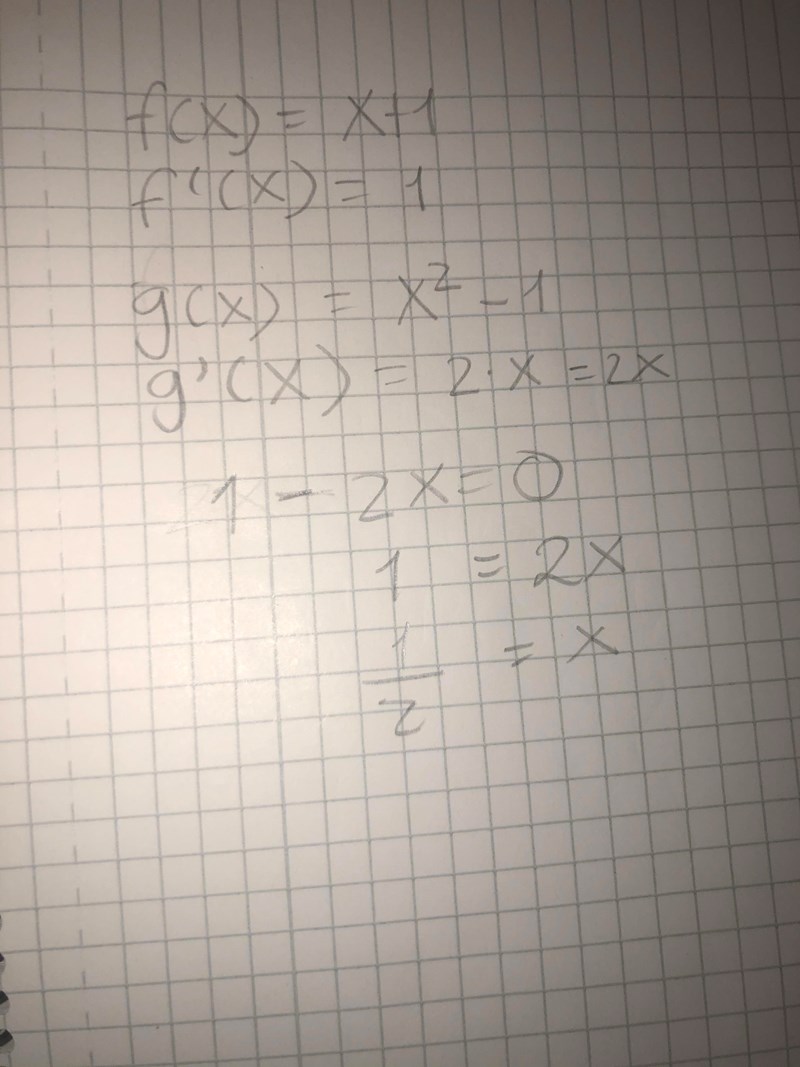 f(x) = x+1
f'(x) = 1
g(x) = x² - 1
g'(x) = 2·x = 2x
1 - 2x = 0
1 = 2x
1/2 = x